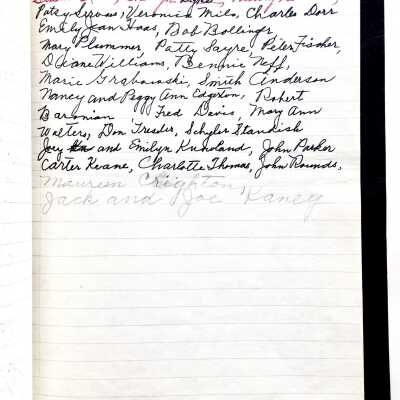 Patsy Servous, Veronica Milo, Charles Dorr
Emily Jean Haas, Bob Bollinger
Mary Plummer, Patty Sayre, Peter Fischer,
Diane Williams, Bennie Neff,
Marie Grabowski, Smith Anderson
Nancy and Peggy Ann Edgerton, Robert
Baronian Fred Davis, Mary Ann
Walters, Don Tressler, Schyler Standish
Joey and Emilyn Kunoland, John Parker
Carter Keane, Charlotte Thomas, John Rounds,
Maureen Creighton,
Jack and Joe Kaney